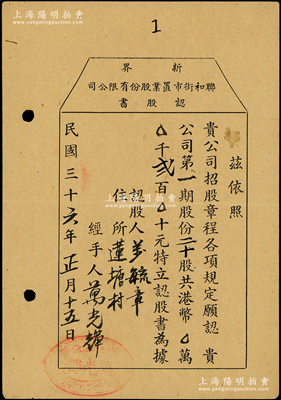 上海陽明拍賣
www.yangmingauction.com
1
新界
聯和街市置業股份有限公司
認股書
茲依照
貴公司招股章程各項規定願認 貴
公司第一期股份二十股共港幣△萬
△千弍百△十元特立認股書為據
認股人
住所蓮塘村
經手人萬光輝
民國三十六年正月十五日
上海陽明拍賣
www.yangmingauction.com